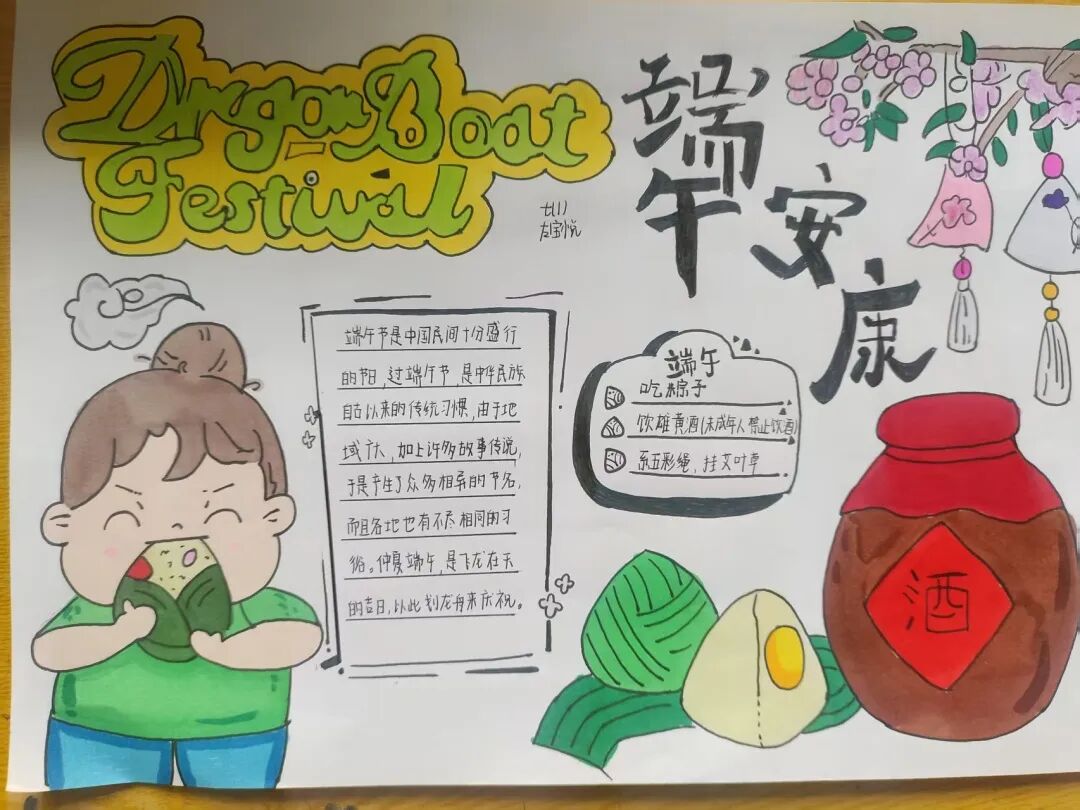 Dragon Boat
Festival
七11
左宝悦
端午安康
端午节是中国民间十分盛行
的节日,过端午节,是中华民族
自古以来的传统习惯,由于地
域广大,加上许多故事传说,
于是产生了众多相异的节名,
而且各地也有不尽相同的习
俗。仲夏端午,是飞龙在天
的吉日,以此划龙舟来庆祝。
端午
吃粽子
饮雄黄酒(未成年人禁止饮酒)
系五彩绳,挂艾叶草
酒